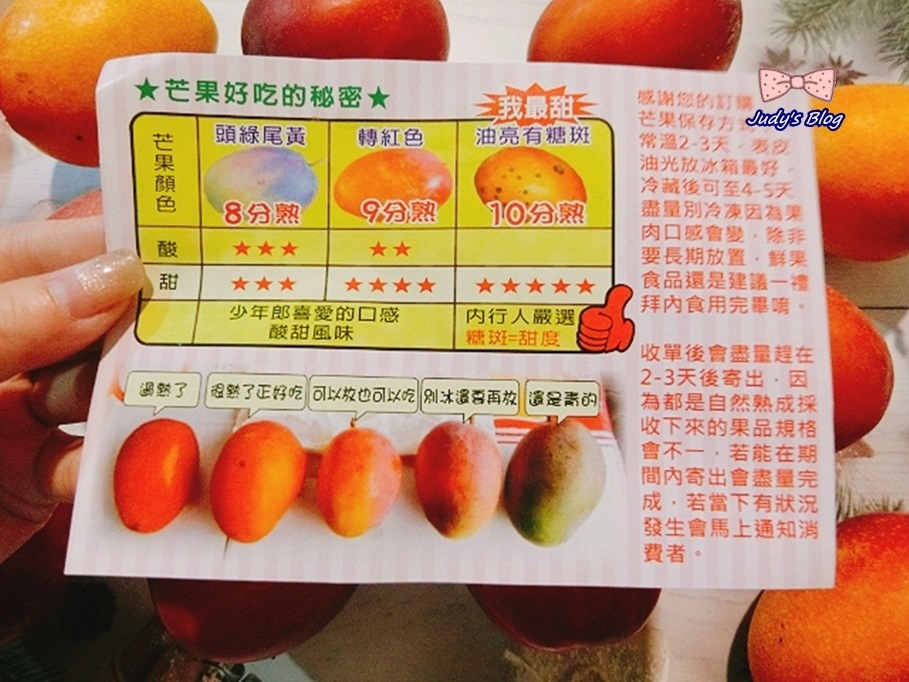 ★芒果好吃的秘密★
我最甜
芒果顏色
頭綠尾黃
轉紅色
油亮有糖斑
8分熟
9分熟
10分熟
酸
★★★
★★
甜
★★★
★★★★
★★★★★
少年郎喜愛的口感
酸甜風味
內行人嚴選
糖斑=甜度
過熟了
很熟了正好吃
可以放也可以吃
別冰還要再放
還是青的
感謝您的訂購
芒果保存方式
常溫2-3天,表皮
油光放冰箱最好,
冷藏後可至4-5天
盡量別冷凍因為果
肉口感會變,除非
要長期放置,鮮果
食品還是建議一禮
拜內食用完畢唷。
收單後會盡量趕在
2-3天後寄出,因
為都是自然熟成採
收下來的果品規格
會不一,若能在期
間內寄出會盡量完
成,若當下有狀況
發生會馬上通知消
費者。
Judy's Blog